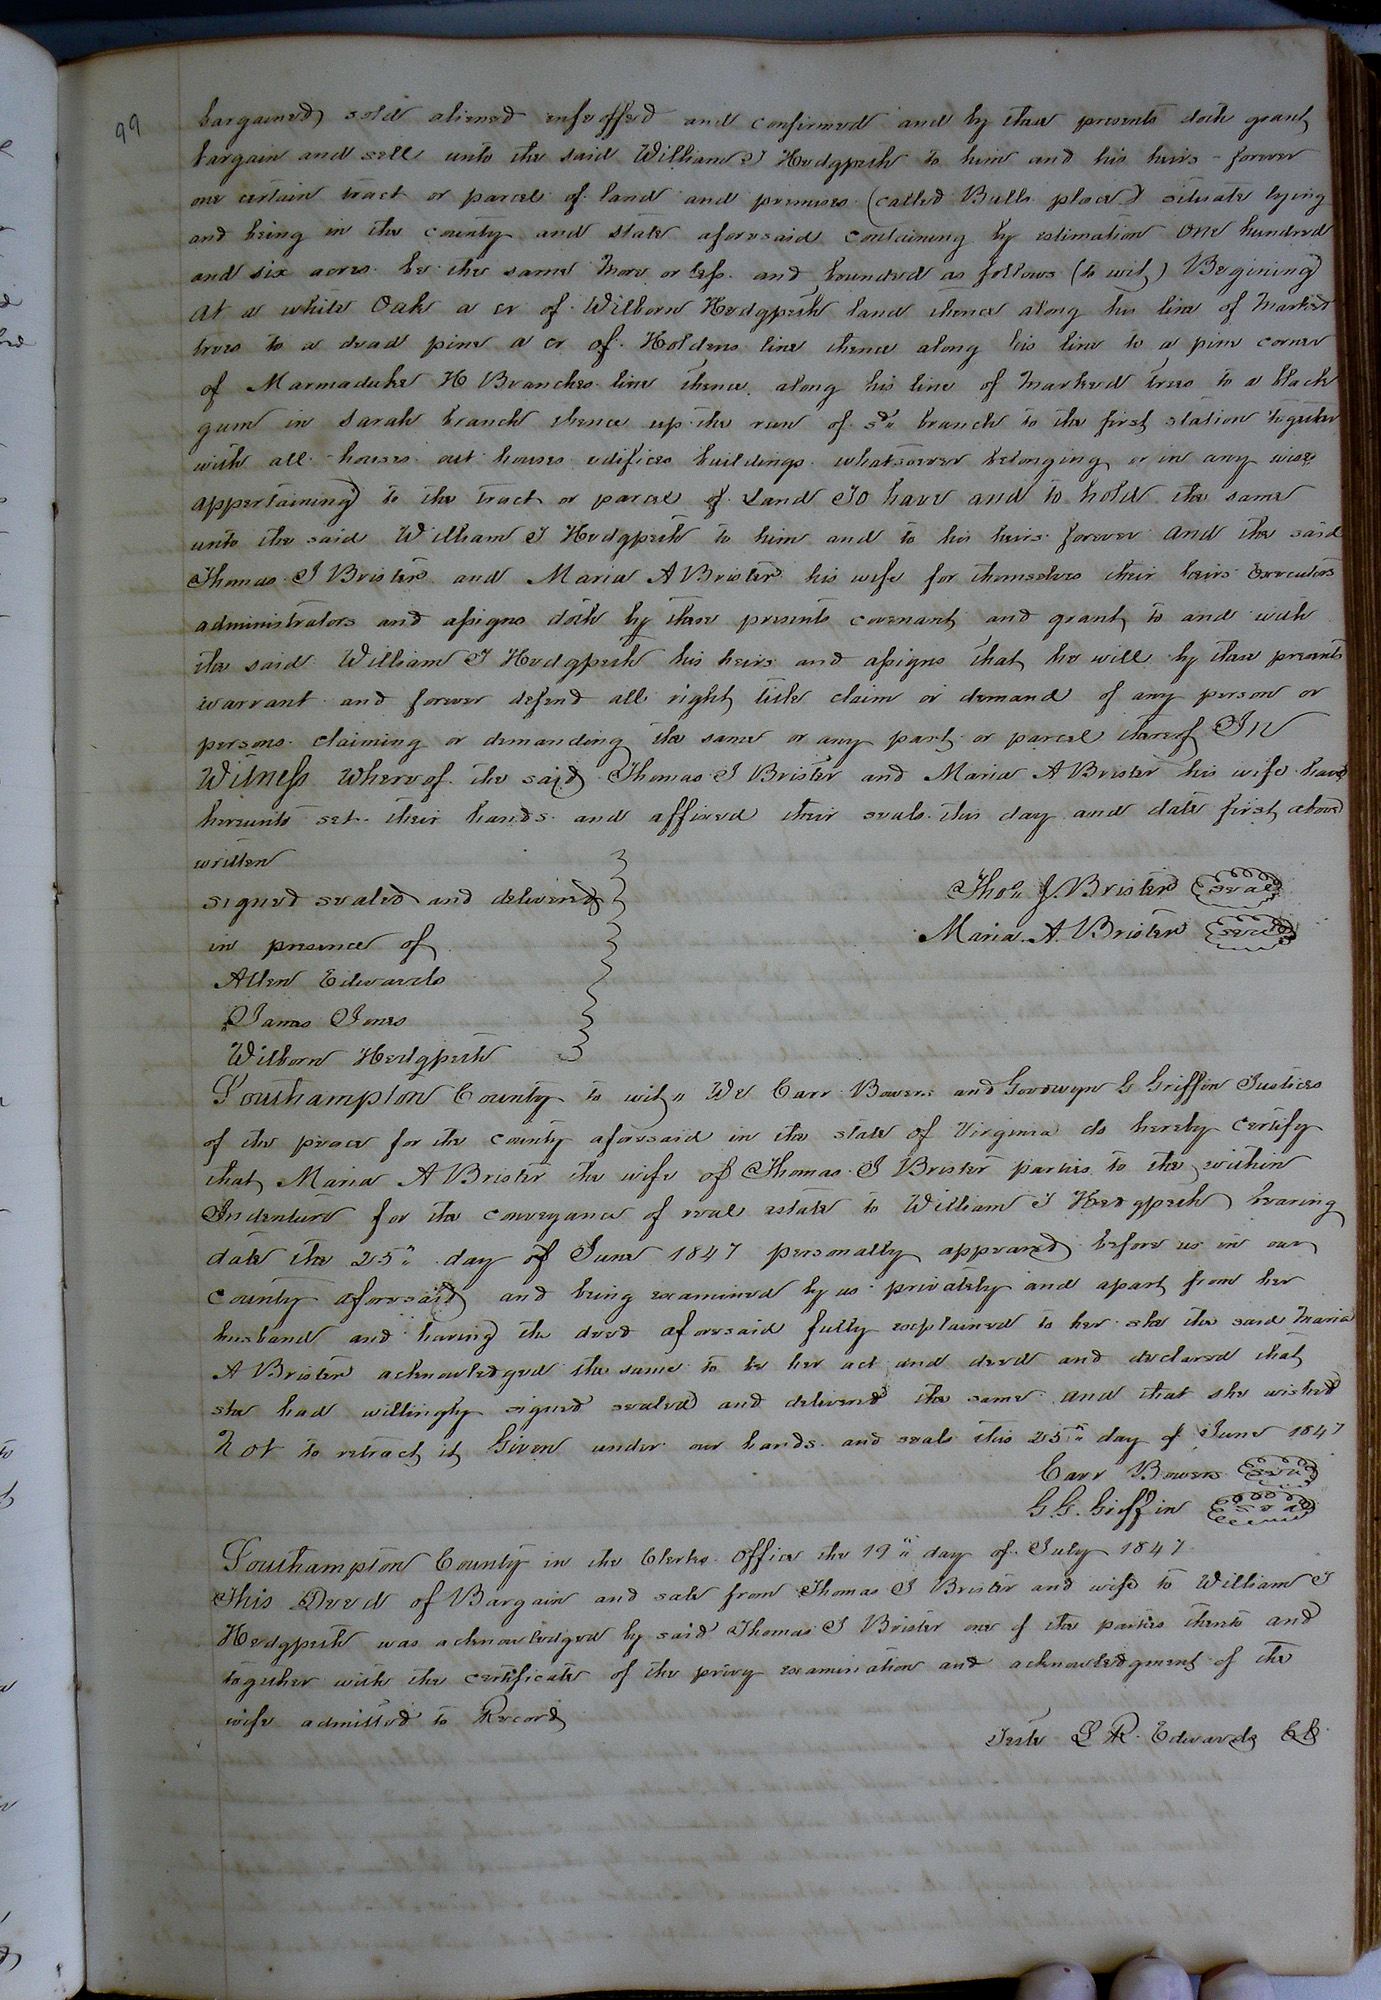 99
bargained, sold aliened enfeoffed and confirmed and by these presents doth grant
bargain and sell unto the said William J Hedgpeth to him and his heirs - forever
one certain tract or parcel of land and premises (called Bulls place) situate lying
and being in the county and state aforesaid containing by estimation one hundred
and six acres be the same more or less and bounded as follows (to wit) Begining
at a white Oak a cr of Wilborn Hedgpeth land thence along his line of marked
trees to a dead pine a cr of Holdens line thence along his line to a pine corner
of Marmaduke H Branches line thence along his line of marked trees to a black
gum in Sarah branch thence up the run of sd branch to the first station together
with all houses out houses edifices buildings whatsoever belonging or in any wise
appertaining to the tract or parcel of Land To have and to hold the same
unto the said William J Hedgpeth to him and to his heirs forever and the said
Thomas J Brister and Maria A Brister his wife for themselves their heirs Executors
administrators and assigns doth by these presents covenant and grant to and with
the said William J Hedgpeth his heirs and assigns that he will by these presents
warrant and forever defend all right title claim or demand of any person or
persons claiming or demanding the same or any part or parcel thereof In
Witness whereof the said Thomas J Brister and Maria A Brister his wife have
hereunto set their hands and affixed their seals this day and date first above
written
signed sealed and delivered
in presence of
Allen Edwards
James Jones
Wilborn Hedgpeth
Thos J. Brister seal
Maria. A. Brister seal
Southampton County to wit " We Carr Bowers and Goodwyn G Griffin Justices
of the peace for the county aforesaid in the state of Virginia do hereby certify
that Maria A Brister the wife of Thomas J Brister parties to the within
Indenture for the conveyance of real estate to William J Hedgpeth bearing
date the 25" day of June 1847 personally appeared before us in our
County aforesaid and being examined by us privately and apart from her
husband and having the deed aforesaid fully explained to her she the said Maria
A Brister acknowledged the same to be her act and deed and declared that
she had willingly signed sealed and delivered the same and that she wished
not to retract it Given under our hands and seals this 25" day of June 1847
Carr Bowers seal
G G. Griffin seal
Southampton County in the Clerks office the 19" day of July 1847
This Deed of Bargain and sale from Thomas J Brister and wife to William J
Hedgpeth was acknowledged by said Thomas J Brister one of the parties thereto and
together with the certificate of the privy examination and acknowledgment of the
wife admitted to Record
Teste L R. Edwards CC